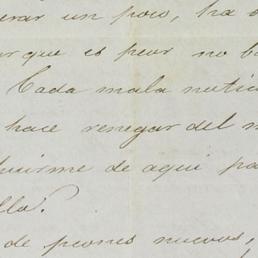 erar un poco, ha
que es peor no
Cada mala notic
hace renegar del m
de aqui pa
lla.
de peones nuevos,